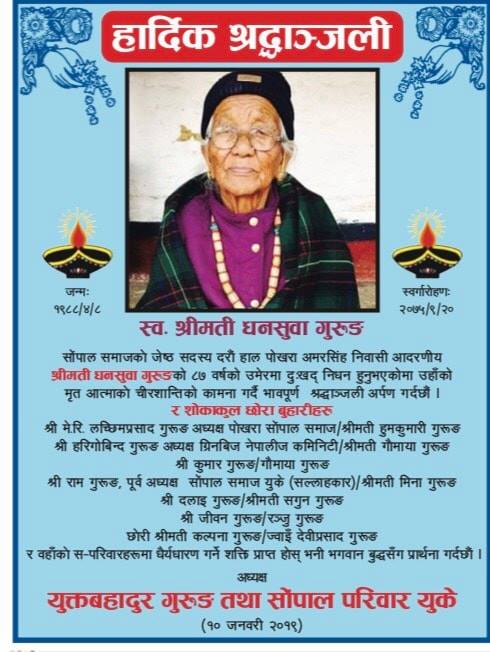 हार्दिक श्रद्धाञ्जली
जन्मः
१९८८/४/८
स्वर्गारोहणः
२०७५/९/२०
स्व. श्रीमती धनसुवा गुरुङ
सोंपाल समाजको जेष्ठ सदस्य दरौं हाल पोखरा अमरसिंह निवासी आदरणीय
श्रीमती धनसुवा गुरुङको ८७ वर्षको उमेरमा दुःखद् निधन हुनुभएकोमा उहाँको
मृत आत्माको चीरशान्तिको कामना गर्दै भावपूर्ण श्रद्धाञ्जली अर्पण गर्दछौं ।
र शोकाकुल छोरा बुहारीहरु
श्री मे.रि. लच्छिमप्रसाद गुरुङ अध्यक्ष पोखरा सोंपाल समाज/श्रीमती हुमकुमारी गुरुङ
श्री हरिगोबिन्द गुरुङ अध्यक्ष ग्रिनबिज नेपालीज कमिनिटी/श्रीमती गौमाया गुरुङ
श्री कुमार गुरुङ/गौमाया गुरुङ
श्री राम गुरुङ, पूर्व अध्यक्ष सोंपाल समाज युके (सल्लाहकार)/श्रीमती मिना गुरुङ
श्री दलाइ गुरुङ/श्रीमती सगुन गुरुङ
श्री जीवन गुरुङ/रञ्जु गुरुङ
छोरी श्रीमती कल्पना गुरुङ/ज्वाइँ देवीप्रसाद गुरुङ
र वहाँको स-परिवारहरुमा धैर्यधारण गर्ने शक्ति प्राप्त होस् भनी भगवान बुद्धसँग प्रार्थना गर्दछौं ।
अध्यक्ष
युक्तबहादुर गुरुङ तथा सोंपाल परिवार युके
(१० जनवरी २०१९)